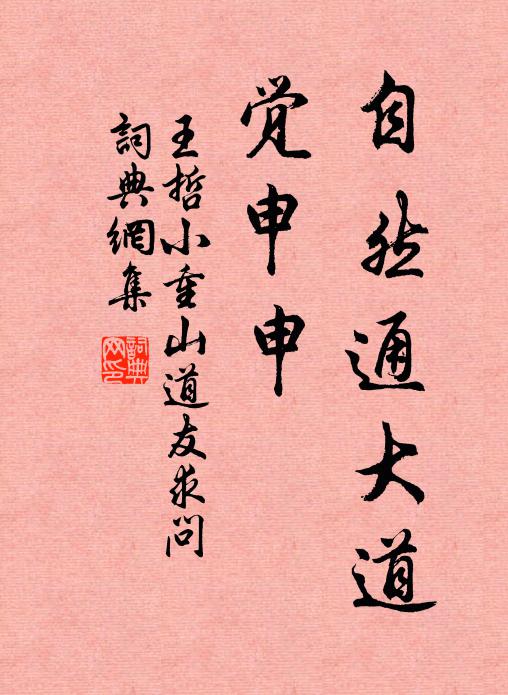 自然通大道
觉申申
王哲小重山道友求問
詞典網集
詞典
网印